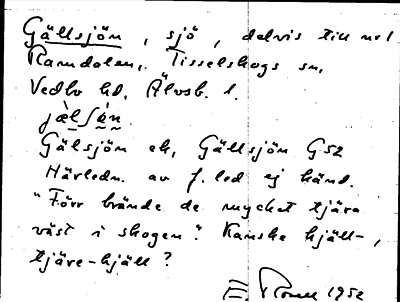 Gällsjön, sjö, delvis till nr 1
Ramdalen, Tisselskogs sn,
Vedbo hd, Älvsb. l.
jälSǻn
Gälsjön ek, Gällsjön G52
Härledn. av f. led ej känd.
"Förr brände de mycket tjära
väst i skogen". Kanske hjäll-,
tjäre-hjäll?
E. 1952